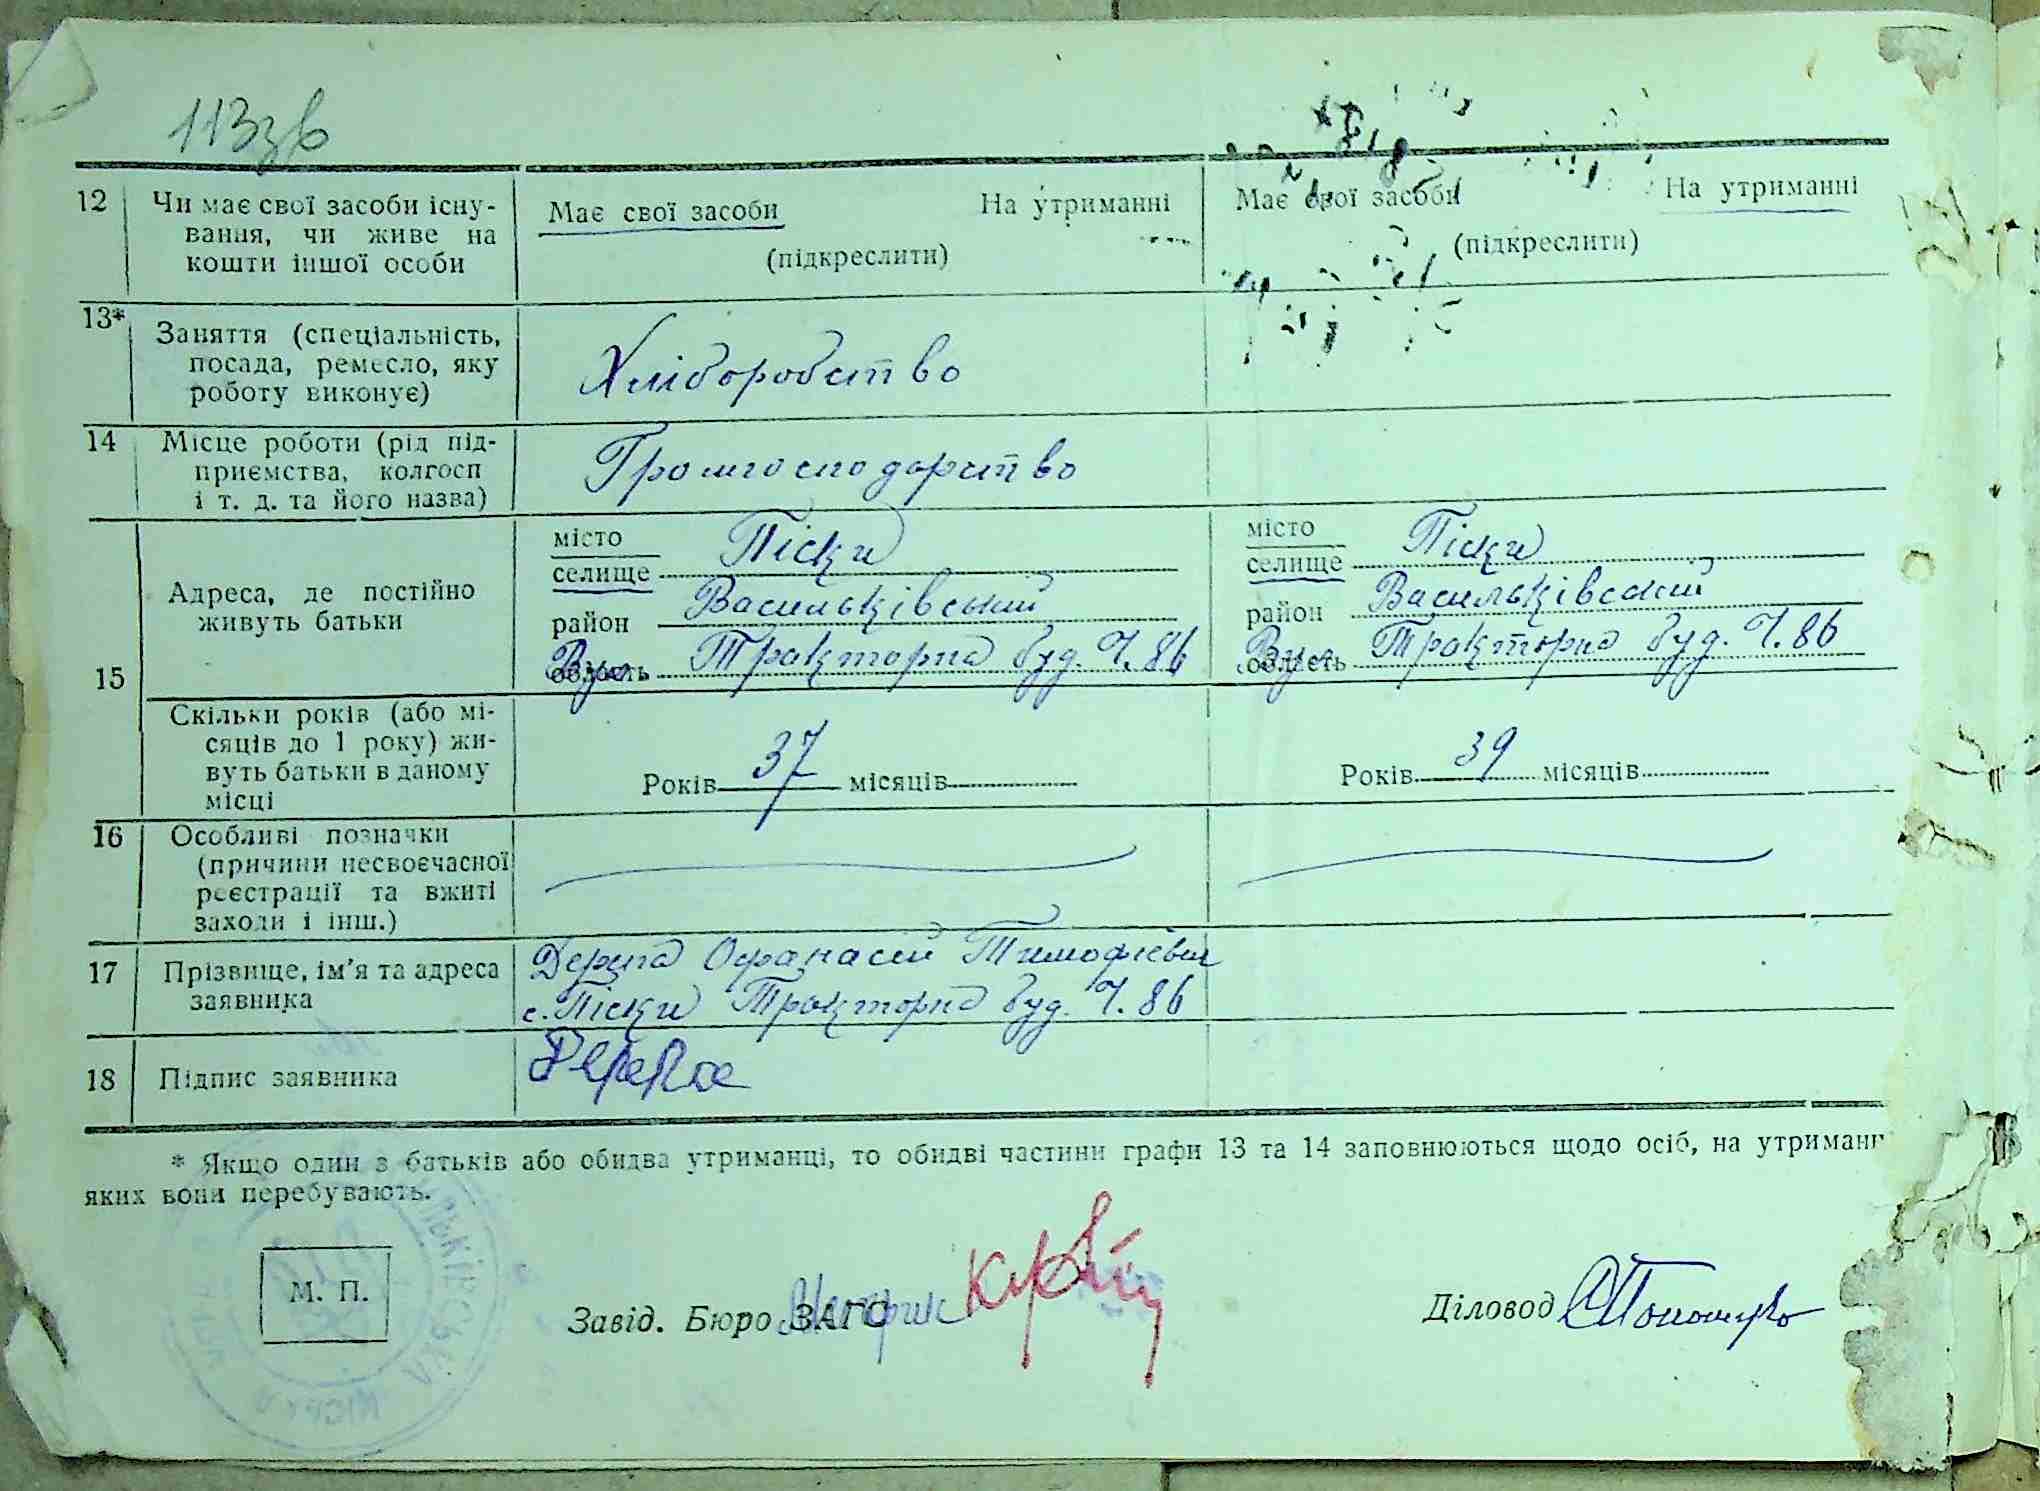 113зв
12 Чи має свої засоби існу-
вання, чи живе на
кошти іншої особи
Має свої засоби На утриманні
(підкреслити)
Має свої засоби На утриманні
(підкреслити)
13* Заняття (спеціальність,
посада, ремесло, яку
роботу виконує)
Хліборобство
14 Місце роботи (рід під-
приємства, колгосп
і т. д. та його назва)
Громгосподарство
15
Адреса, де постійно
живуть батьки
місто
селище Піски
район Васильківський
область Вул. Тракторна буд. Ч. 86
місто
селище Піски
район Васильківський
область Вул. Тракторна буд. Ч. 86
Скільки років (або мі-
сяців до 1 року) жи-
вуть батьки в даному
місці
Років 37 місяців
Років 39 місяців
16 Особливі позначки
(причини несвоєчасної
реєстрації та вжиті
заходи і інш.)
17 Прізвище, ім'я та адреса
заявника
Офанасій Тимофієвич
с. Піски Тракторна буд. Ч. 86
18 Підпис заявника
* Якщо один з батьків або обидва утриманці, то обидві частини графи 13 та 14 заповнюються щодо осіб, на утриманн
яких вони перебувають.
М. П.
Завід. Бюро ЗАГС
Діловод